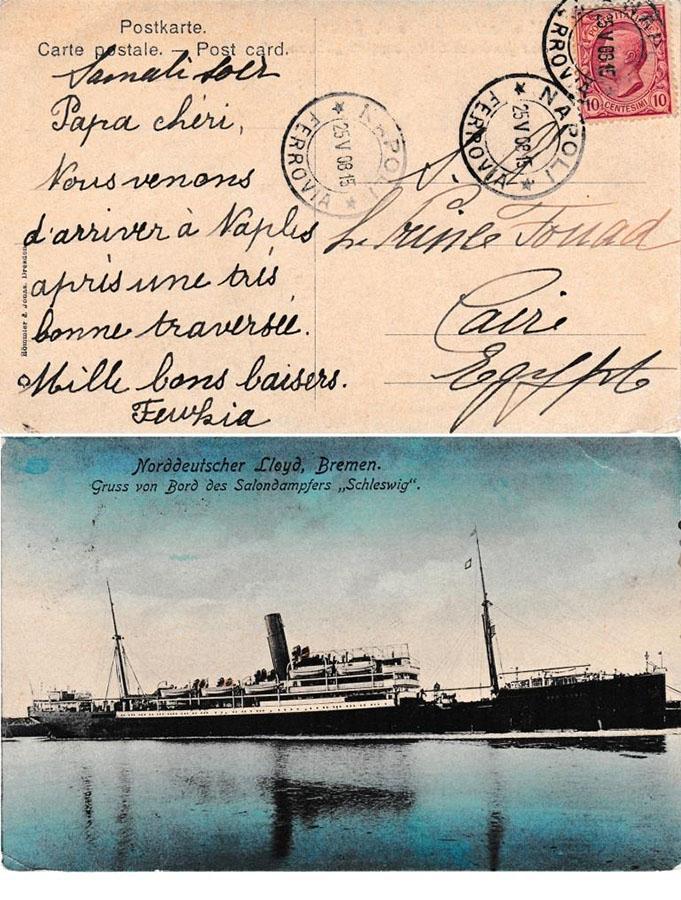 Postkarte.
Carte postale. — Post card.
Samedi soir
Papa chéri,
Nous venons
d'arriver à Naples
après une très
bonne traversée.
Mille bons baisers.
Fewkia
NAPOLI
25 V 08 15
FERROVIA
NAPOLI
25 V 08 15
FERROVIA
25 V 08 15
POSTE ITALIANE
10 CENTESIMI 10
S. A.
Le Prince Fouad
Caire
Egypte
Römmler & Jonas, Dresden
Norddeutscher Lloyd, Bremen.
Gruss von Bord des Salondampfers „Schleswig".